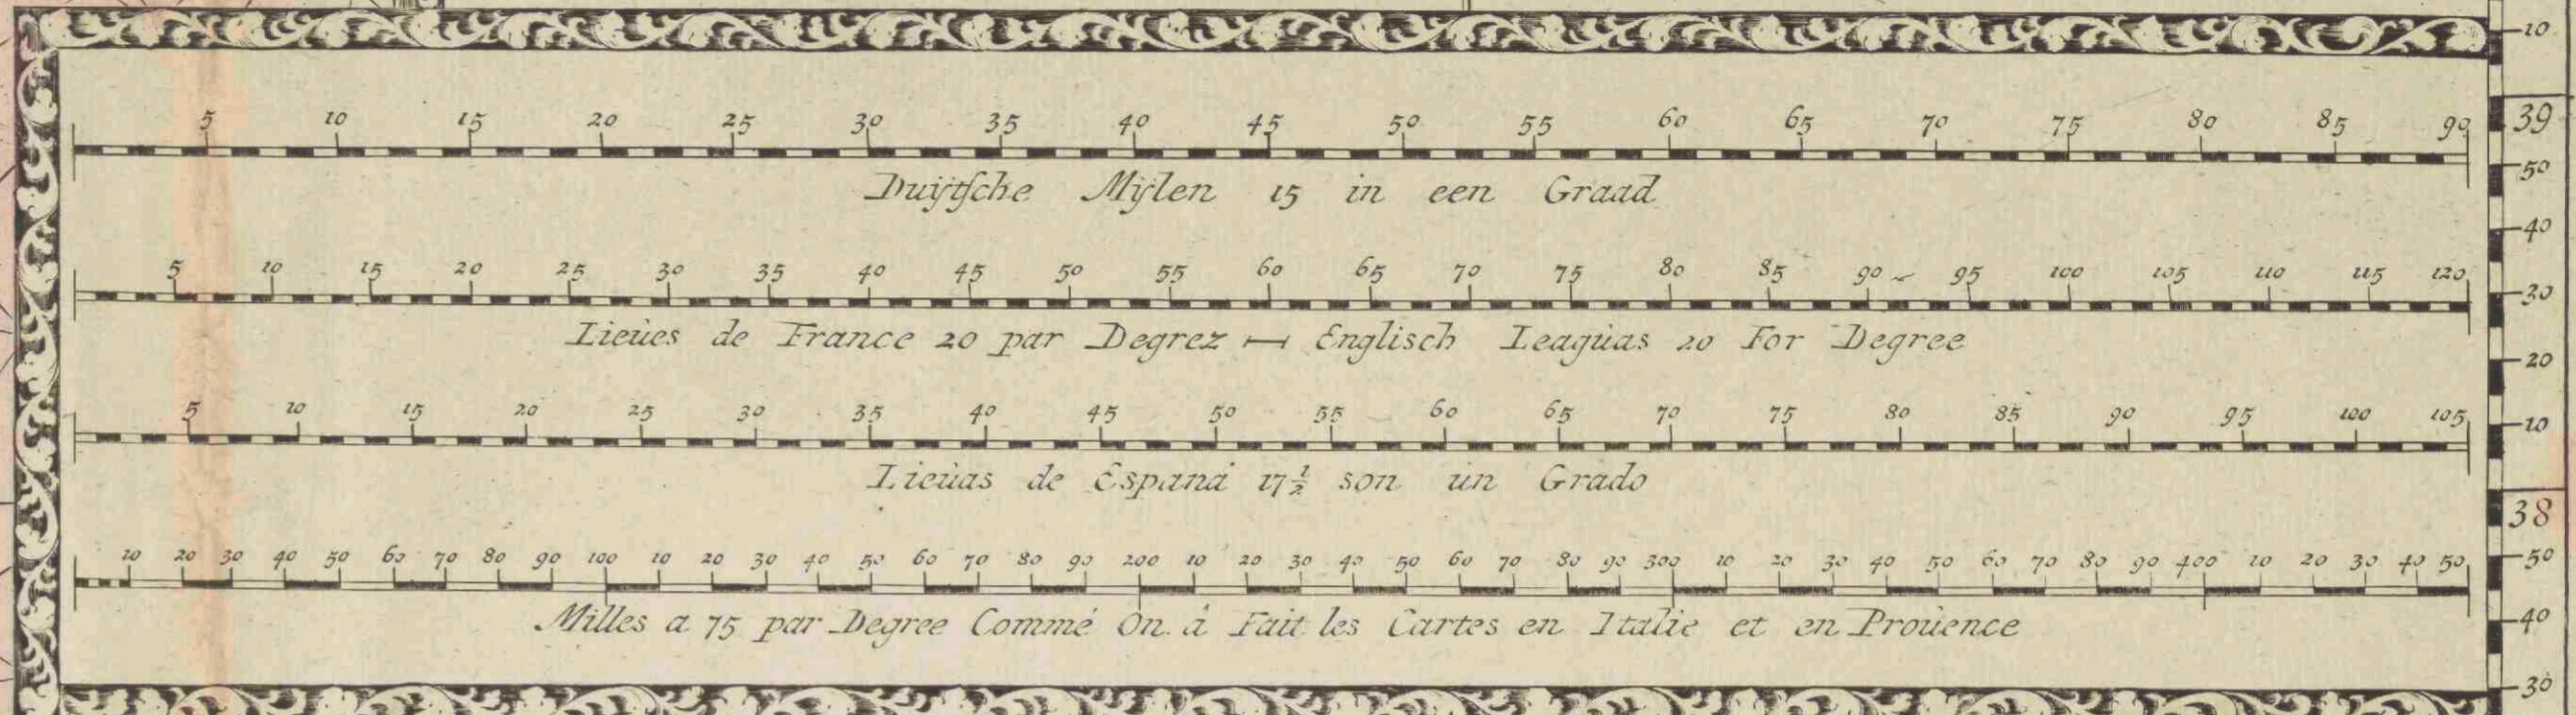 10
5 10 15 20 25 30 35 40 45 50 55 60 65 70 75 80 85 90
39
50
Duÿtsche Mÿlen 15 in een Graad
40
5 10 15 20 25 30 35 40 45 50 55 60 65 70 75 80 85 90 95 100 105 110 115 120
30
Lieùes de France 20 par Degrez Englisch Leagùas 20 For Degree
20
5 10 15 20 25 30 35 40 45 50 55 60 65 70 75 80 85 90 95 100 105
10
Lieùas de Espana 17½ son ùn Grado
38
10 20 30 40 50 60 70 80 90 100 10 20 30 40 50 60 70 80 90 200 10 20 30 40 50 60 70 80 90 300 10 20 30 40 50 60 70 80 90 400 10 20 30 40 50
50
Milles a 75 par Degree Commé On â Fait les Cartes en Italie et en Proùence
40
30